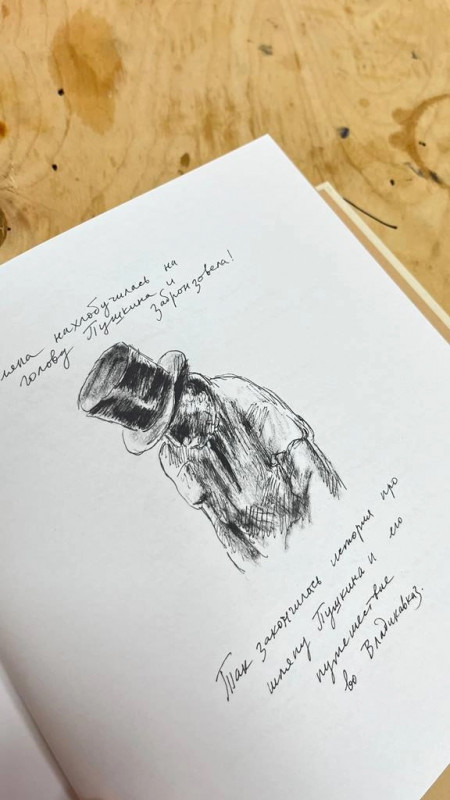 ляпа нахлобучилась на
голову Пушкина и
забронзовела!
Так закончилась история про
шляпу Пушкина и его
путешествие
во Владикавказ.